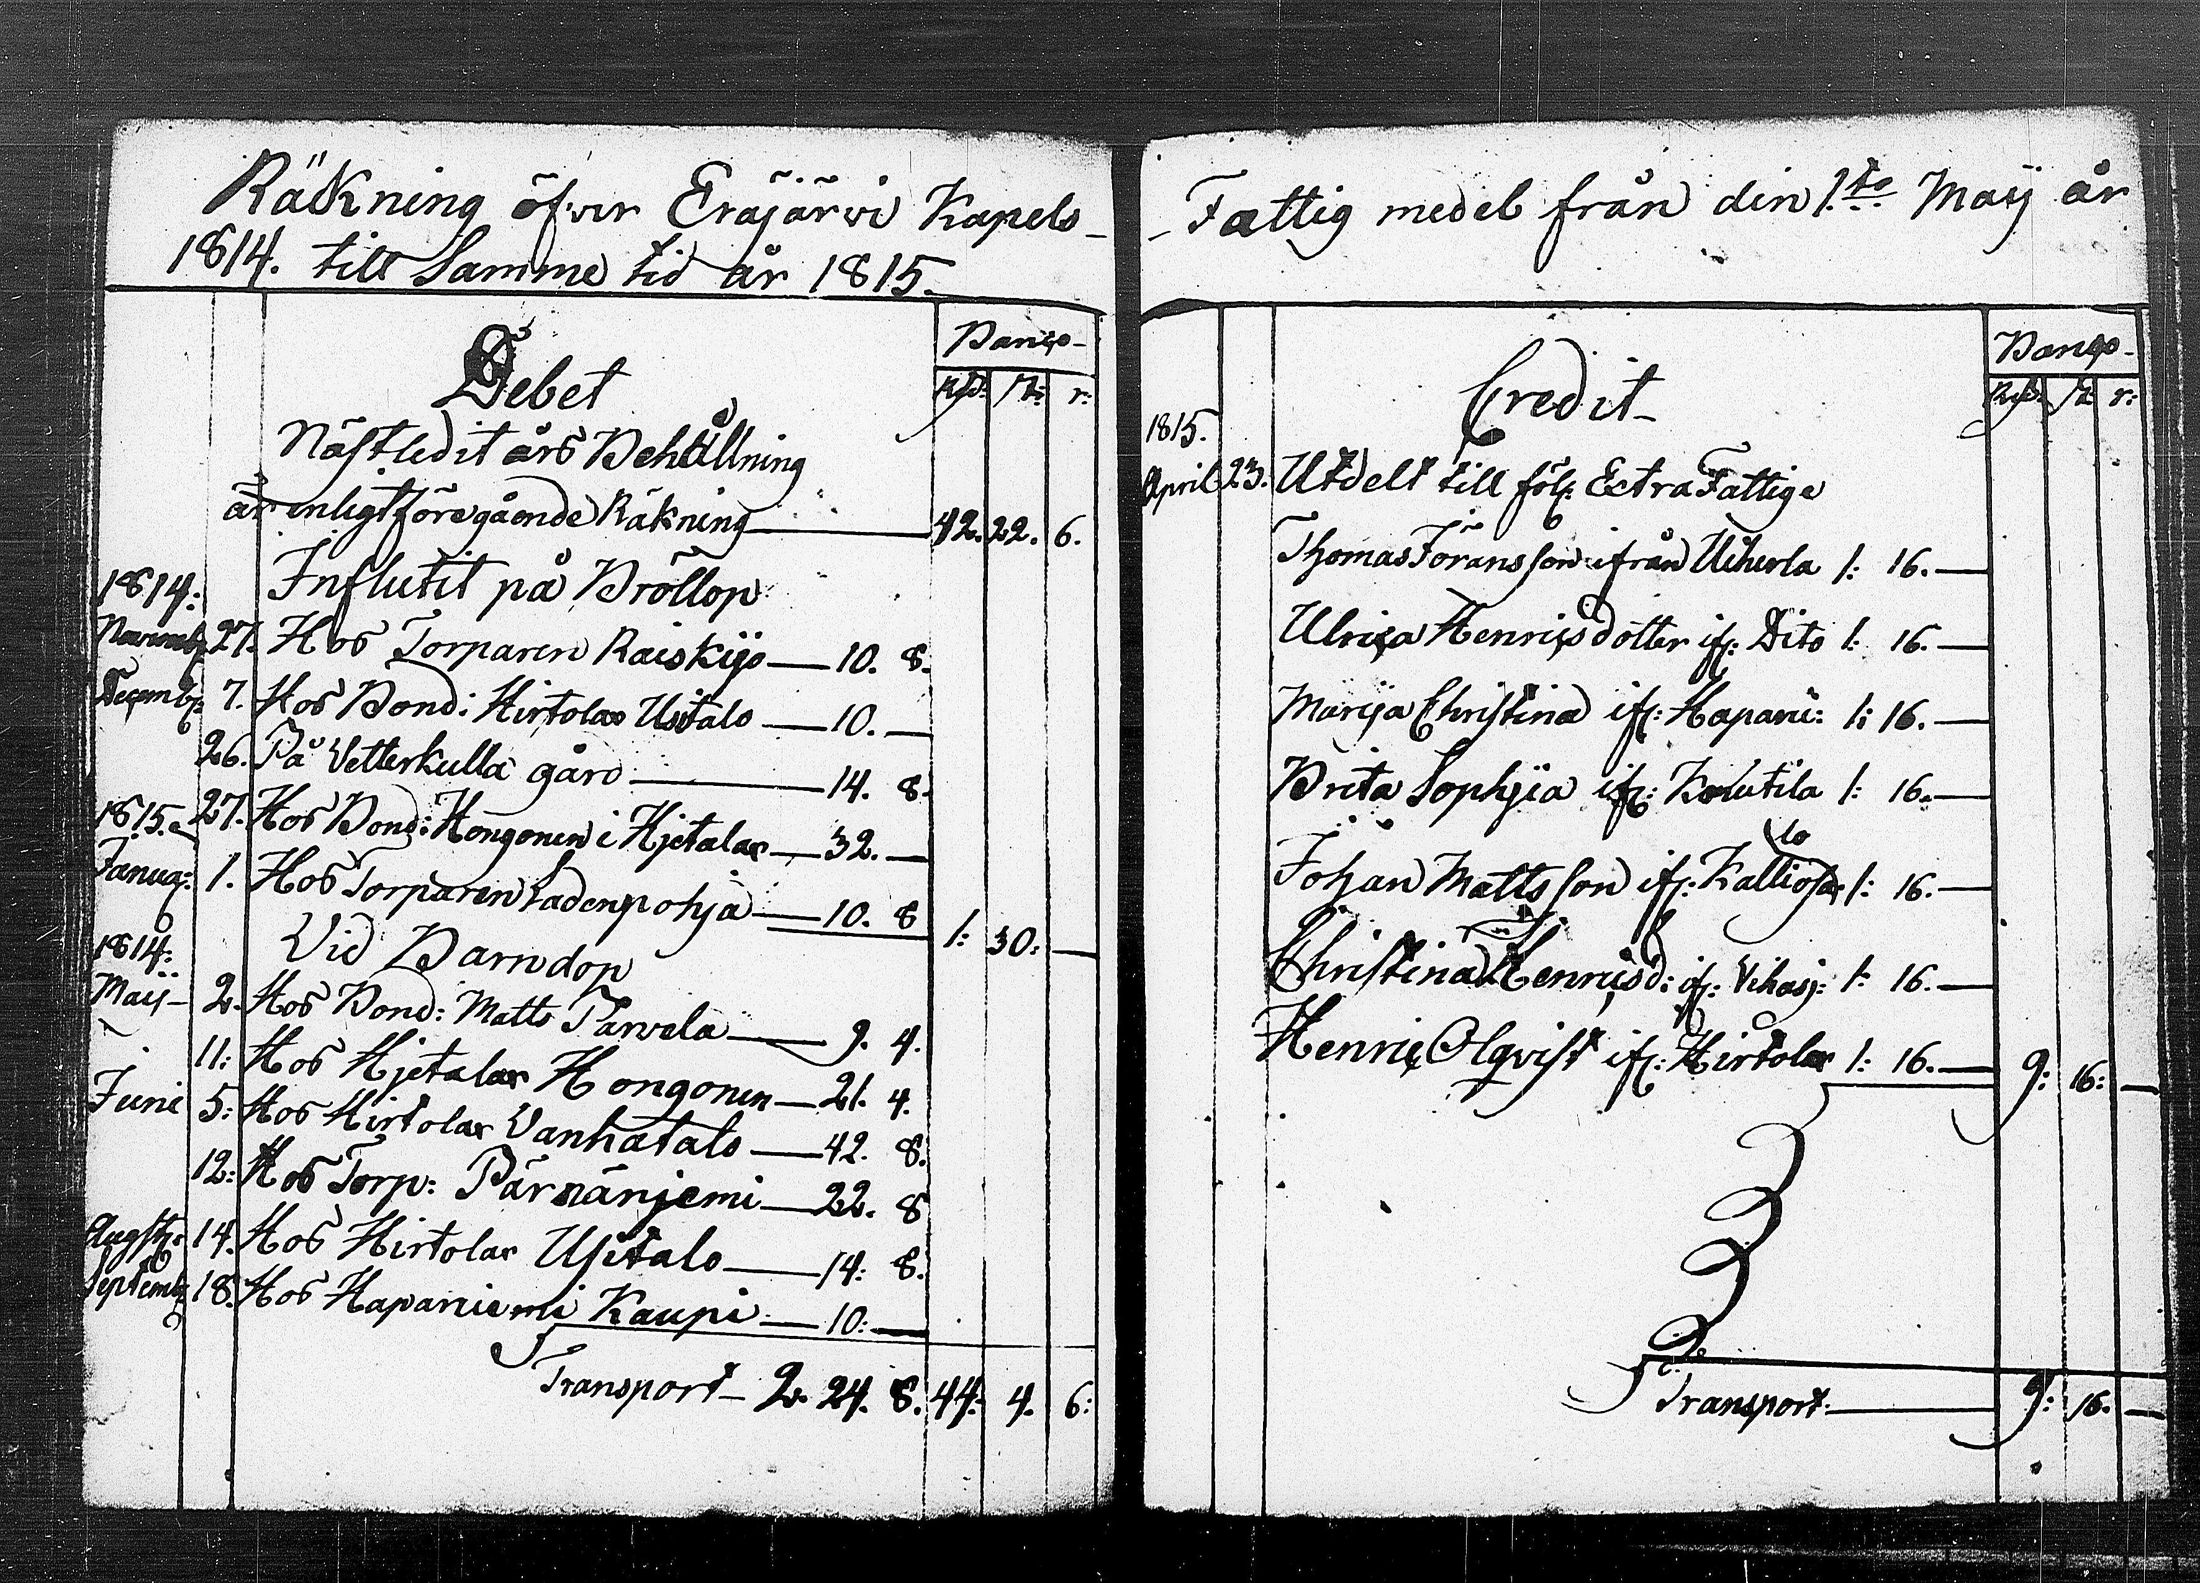 Räkning öfver Eräjärwi Kapels-
1814. till Samme tid år 1815.
Debet
Banco-
Rd: ß: r:
Nästledit års Behållning
är enligt föregående Räkning — 42. 22. 6.
1814: Influtit på Bröllop
Novemb: 27. Hos Torparen Raiskijo — 10. 8.
Decemb: 7. Hos Bond: Hirtolax Usitalo — 10. —
26. På Vetterkulla gård — 14. 8.
1815. 27. Hos Bond: Hongonen i Hjetalax — 32. —
Januar: 1. Hos Torparen Ladenpohja — 10. 8 1: 30: —
1814: Vid Barndop
Maij — 2. Hos Bond: Matts Parvela — 9. 4.
11: Hos Hjetalax Hongonen — 21. 4.
Juni 5: Hos Hirtolax Vanhatalo — 42. 8.
12: Hos Torp: Pärnänjemi — 22. 8
Augsti: 14. Hos Hirtolax Usitalo — 14: 8.
Septemb: 18. Hos Hapaniemi Kaupi — 10: —
Transport — 2. 24. 8. 44: 4. 6:
-Fattig medel från din 1:to Maij år
Credit-
Banco-
Rd: ß r:
1815.
April 23. Utdelt till följ: Extra Fattige
Thomas Göransson ifrån Uiherla 1: 16. —
Ulrica Henricsdotter if: Dito 1: 16. —
Marija Christina if: Hapani: 1: 16. —
Brita Sophjia if: Koluttila 1: 16. —
lo
Johan Mattsson if: Kallio 1: 16. —
Christina Henricsd: if: Vihasj: 1: 16. —
Henric Olqvist if: Hirtolax 1: 16. — 9: 16: —
Transport. — 9: 16. —